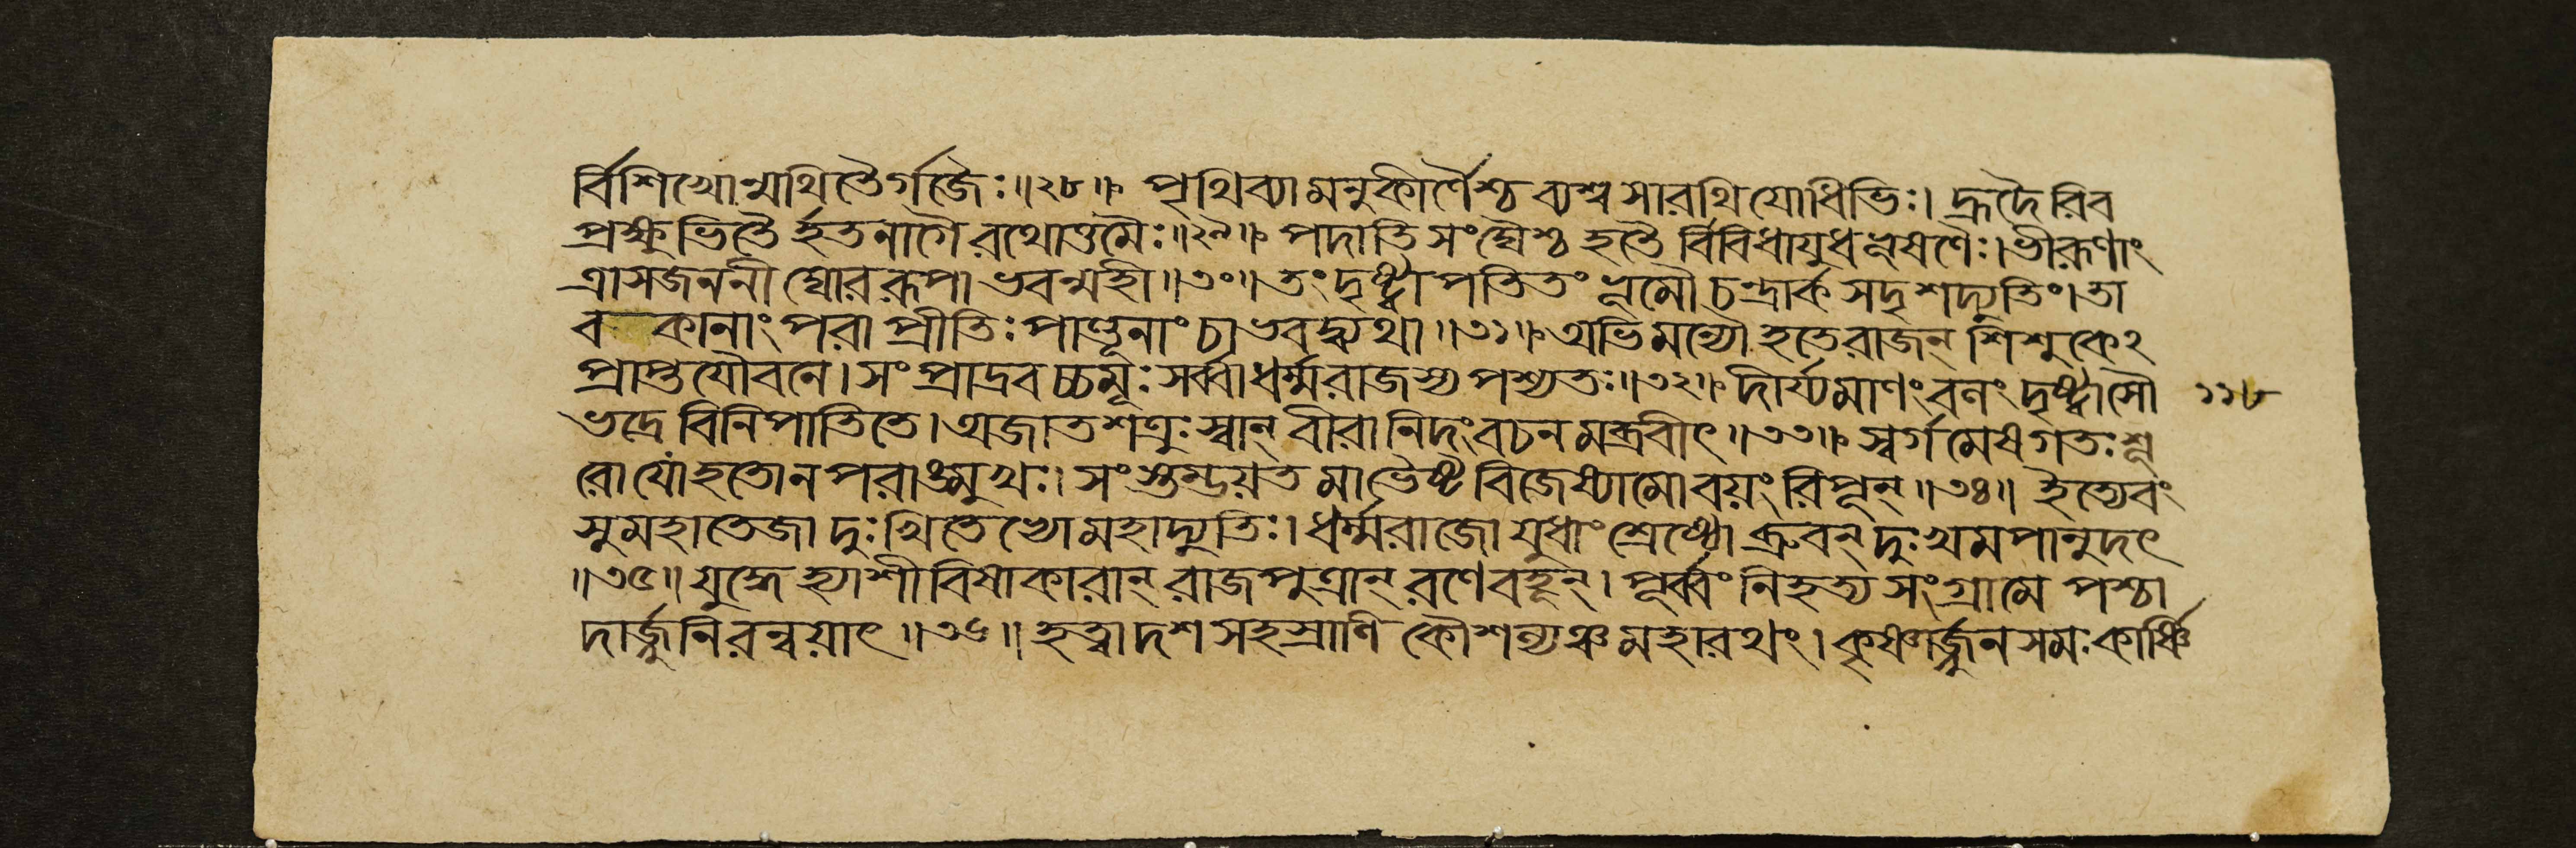 র্বিশিখোন্মথিতৈর্গজৈঃ॥২৮॥ পৃথিব্যামনুকীর্ণৈশ্চ ব্যশ্বসারথিযোধিভিঃ। হ্রদৈরিব
প্রক্ষুভিতৈর্হতনাগৈ রথোত্তমৈঃ॥২৯॥ পদাতিসংঘৈশ্চ হতৈর্বিবিধায়ুধভূষণৈঃ।ভীরূণাং
ত্রাসজননী ঘোররূপাভবন্মহী॥৩০॥তং দৃষ্ট্বা পতিতং ভূমৌ চন্দ্রার্কসদৃশদ্যুতিং।তা
বকানাং পরা প্রীতিঃ পাণ্ডূনাং চাভবদ্ব্যথা॥৩১॥অভিমন্যৌ হতে রাজন্ শিশুকেঽ
প্রাপ্তযৌবনে।সংপ্রাদ্রবচ্চমূঃ সর্ব্বা ধর্ম্মরাজস্য পশ্যতঃ॥৩২॥ দীর্য্যমাণং বলং দৃষ্ট্বা সৌ ১১৮
ভদ্রে বিনিপাতিতে।অজাতশত্রুঃ স্বান্ বীরানিদং বচনমব্রবীৎ॥৩৩॥ স্বর্গমেষ গতঃ শূ
রো যো হতো ন পরাঙ্মুখঃ।সংস্তম্ভয়ত মা ভৈষ্ট বিজেষ্যামো বয়ং রিপূন্॥৩৪॥ ইত্যেবং
সুমহাতেজা দুঃখিতেভ্যো মহাদ্যুতিঃ।ধর্ম্মরাজো যুধাং শ্রেষ্ঠো ব্রুবন্ দুঃখমপানুদৎ
॥৩৫॥যুদ্ধে হ্যাশীবিষাকারান্ রাজপুত্রান্ রণে বহূন্। পূর্ব্বং নিহত্য সংগ্রামে পশ্চা
দার্জ্জুনিরন্বয়াৎ॥৩৬॥হত্বা দশসহস্রাণি কৌশল্যঞ্চ মহারথং।কৃষ্ণার্জ্জুনসমঃ কার্ষ্ণি